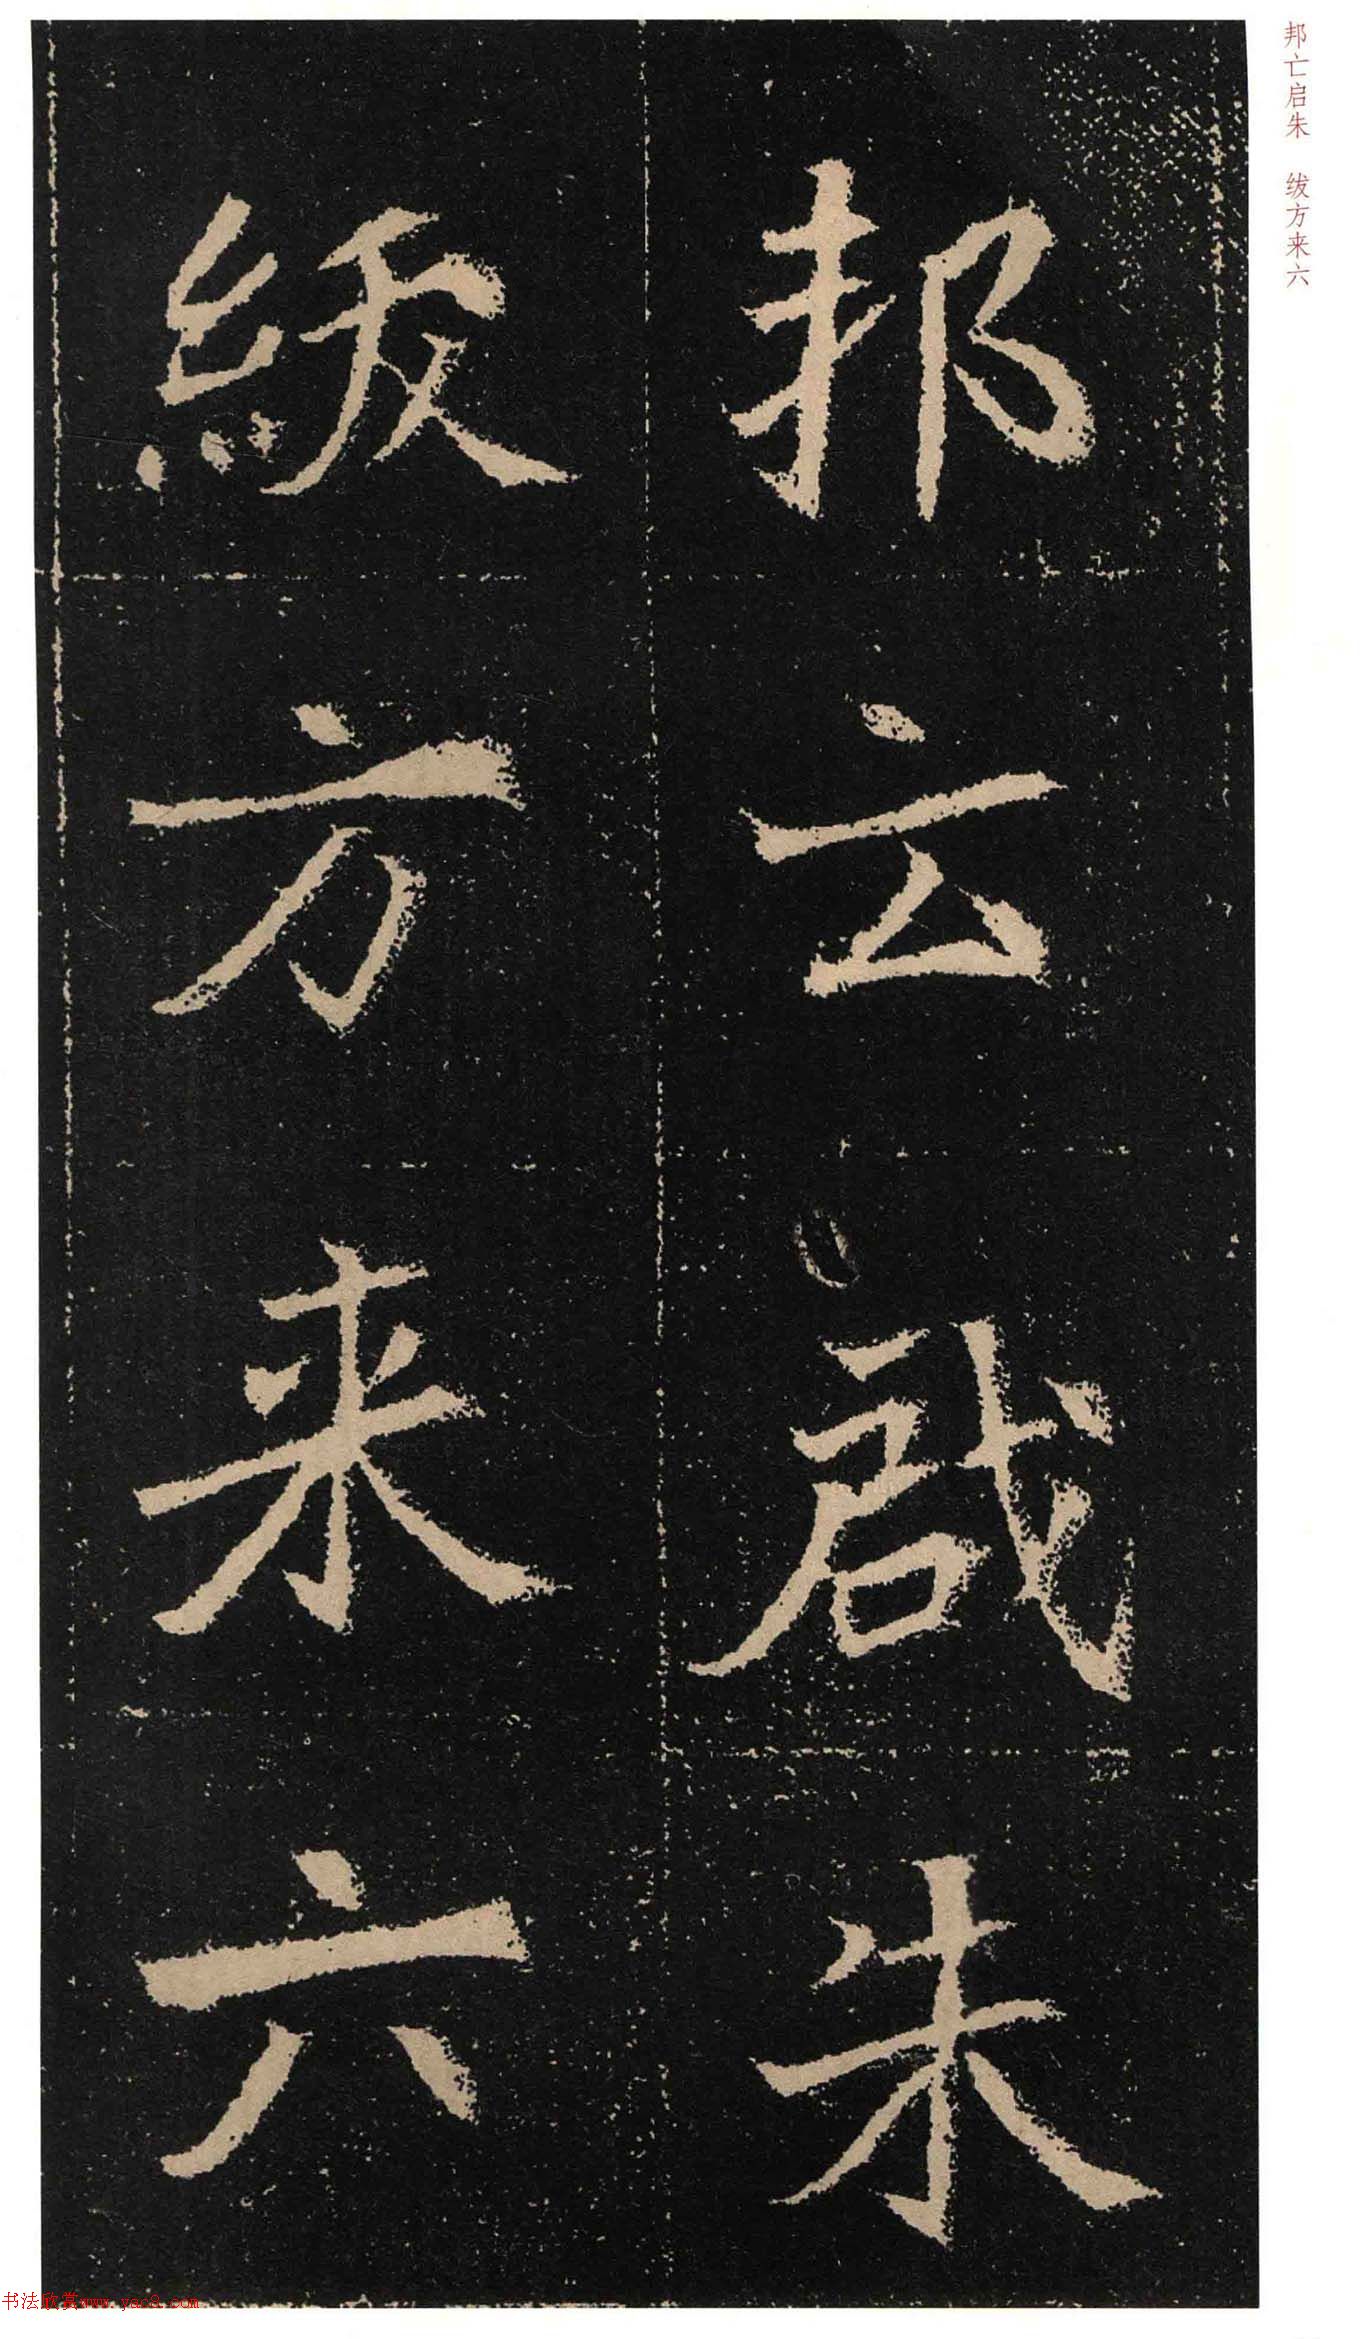 邦亡启朱 绂方来六
邦云啟朱
紱方来六
书法欣赏www.yac8.com